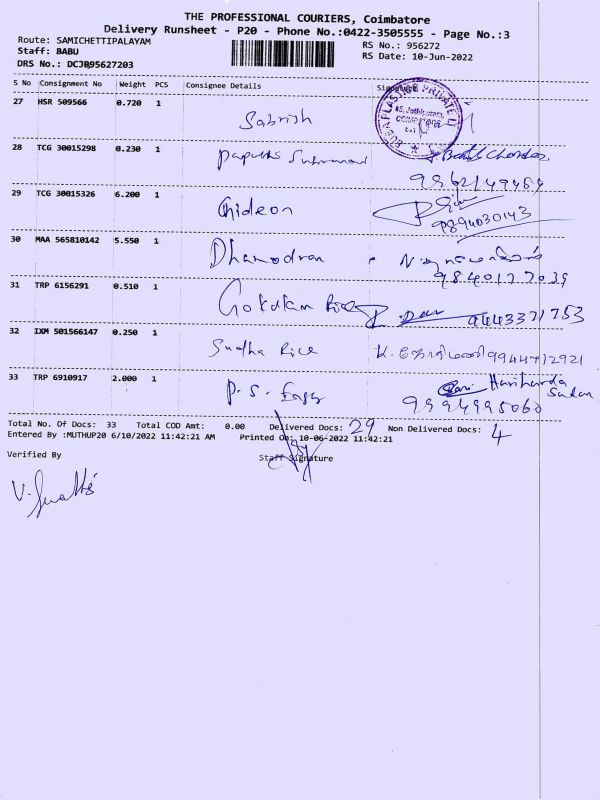 THE PROFESSIONAL COURIERS, Coimbatore
Delivery Runsheet - P20 - Phone No.:0422-3505555 - Page No.:3
Route: SAMICHETTIPALAYAM
RS No.: 956272
Staff: BABU
RS Date: 10-Jun-2022
DRS No.: DCJB95627203
S No Consignment No Weight PCS Consignee Details Signature
27 HSR 509566 0.720 1 Sabrish
28 TCG 30015298 0.230 1
9962149484
29 TCG 30015326 6.200 1 Chideon
9894030143
30 MAA 565810142 5.550 1 Dhamodran
9840127039
31 TRP 6156291 0.510 1 Gokulam Rice 9443371753
32 IXM 501566147 0.250 1 Sudha Rice 9944712921
33 TRP 6910917 2.000 1 P.S. Hariharda
Sudan
9994995060
Total No. Of Docs: 33 Total COD Amt: 0.00 Delivered Docs: 29 Non Delivered Docs: 4
Entered By :MUTHUP20 6/10/2022 11:42:21 AM Printed On: 10-06-2022 11:42:21
Verified By
Staff Signature